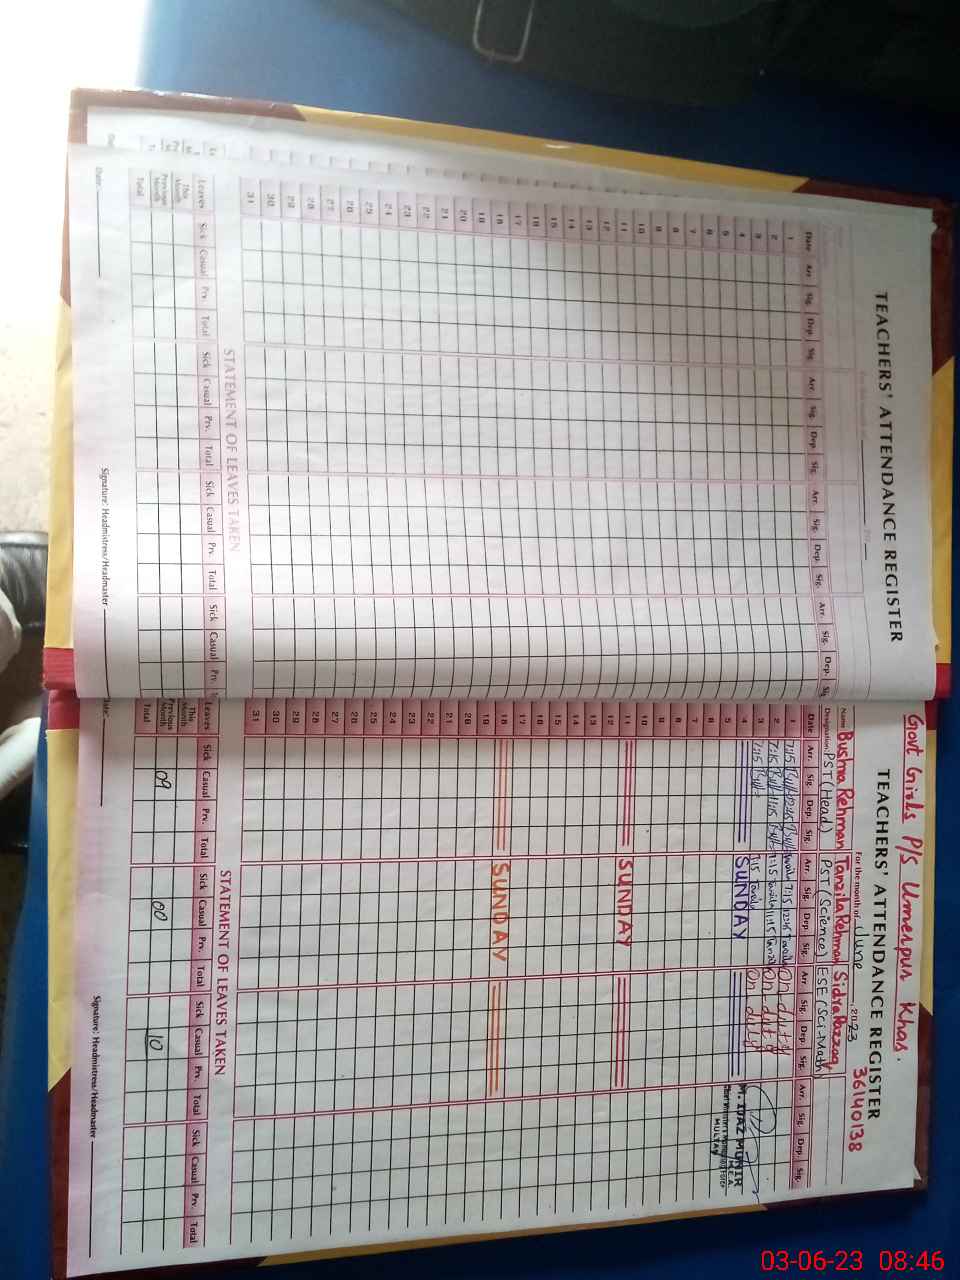 TEACHERS' ATTENDANCE REGISTER
For the month of
Date Arr. Sig. Dep. Sig. Arr. Sig. Dep. Sig. Arr. Sig. Dep. Sig. Arr. Sig. Dep.
1
2
3
4
5
6
7
8
9
10
11
12
13
14
15
16
17
18
19
20
21
22
23
24
25
26
27
28
29
30
31
STATEMENT OF LEAVES TAKEN
Leaves Sick Casual Prv. Total Sick Casual Prv. Total Sick Casual Prv. Total Sick Casual Prv.
This Month
Previous Month
Total
Date: Signature: Headmistress/Headmaster
Govt Girls P/S Umerpur Khas.
TEACHERS' ATTENDANCE REGISTER
For the month of June, 2023 36140138
Name Bushra Rehman Tanzila Rehman Sidra Razzaq
Designation: PST (Head) PST (Science) ESE (Sci-Math)
Date Arr. Sig. Dep. Sig. Arr. Sig. Dep. Sig. Arr. Sig. Dep. Sig. Arr. Sig. Dep. Sig.
1 7:15 12:45 7:15 12:45 On duty
2 7:15 11:15 7:15 11:15 On duty
3 7:15 7:15 On duty
4 SUNDAY
M. IJAZ MUNIR
M.E.A.
MULTAN
5
6
7
8
9
10
11 SUNDAY
12
13
14
15
16
17
18 SUNDAY
19
20
21
22
23
24
25
26
27
28
29
30
31
STATEMENT OF LEAVES TAKEN
Leaves Sick Casual Prv. Total Sick Casual Prv. Total Sick Casual Prv. Total Sick Casual Prv. Total
This Month
Previous Month 09 00 10
Total
Date: Signature: Headmistress/Headmaster
03-06-23 08:46